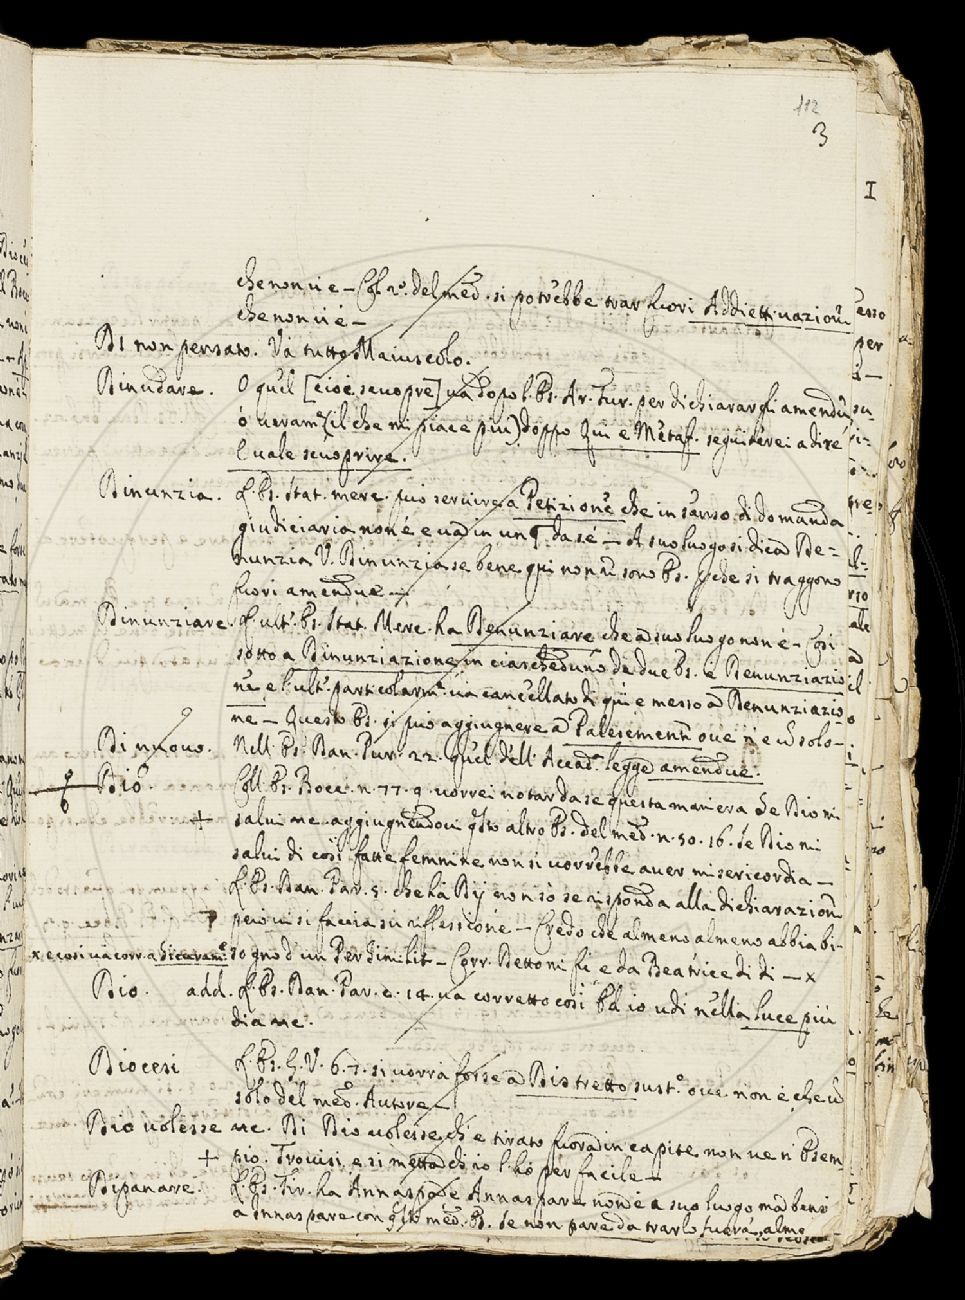 112
3
I
che non vi è – Coll. 2º. del med. si potrebbe trar fuori Addiettivazione
che non vi è –
Di non pensato. Và tutto Maiuscolo.
Dinudare. O quel [cioè scuopre] và dopo l. Es. Ar. Fur. per dichiarargli amendue,
ò veram. (il che mi piace più) doppo Qui è Metaf. seguiterei a dire
e vale scuoprire.
Dinunzia. L. Es. Stat. merc. può servire a Petizione che in senso di domanda
giudiciaria non è e và in un § da sè – A suo luogo si dica De-
nunzia V. Dinunzia se bene qui non vi sono Es. che si traggono
fuori amendue –
Dinunziare. L. ult. Es. Stat. Merc. ha Denunziare che a suo luogo non è – Così
sotto a Dinunziazione in ciascheduno de due Es. è Denunziazio
ne e l'ult. particolarm. và cancellato di qui e messo a Denunziazio
ne – Questo Es. si può aggiugnere a Palesemento ove n'è un solo –
Di nuovo. Nell. Es. Dan. Pur. 22. quel dell'Accad. legge amendue.
Dio. Coll. Es. Bocc. n. 77. 9. vorrei notar da se questa maniera Se Dio mi
+ salvi me. aggiugnendovi qsto altro Es. del med. n. 50. 16. Se Dio mi
salvi di così fatte femmine non si vorrebbe aver misericordia –
L. Es. Dan. Par. 5. che hà Dij non sò se risponda alla dichiarazione
però vi si faccia su riflessione – Credo che almeno almeno abbia bi-
x e così và corr. a sicuram. sogno d'un Per similit – Corr. Dettomi fi e da Beatrice di di – x
Dio. add. L. Es. Dan. Par. c. 14. và corretto così Ed io udi nella luce più
dia &c.
Diocesi L. Es. G. V. 6. 7. si vorrà forse a Distretto sust. ove non è che un
solo del med. Autore –
Dio volesse &c. Di Dio volesse ch'è tirato fuora in capite non ve n'è Esem
+ pio. Trovisi, e si metta che io l'hò per facile –
Dipanare. L. Es. Fir. ha Annaspa e Annaspare non è a suo luogo ma bene
a Innaspare con qsto med. Es. se non pare da trarlo fuera, alme